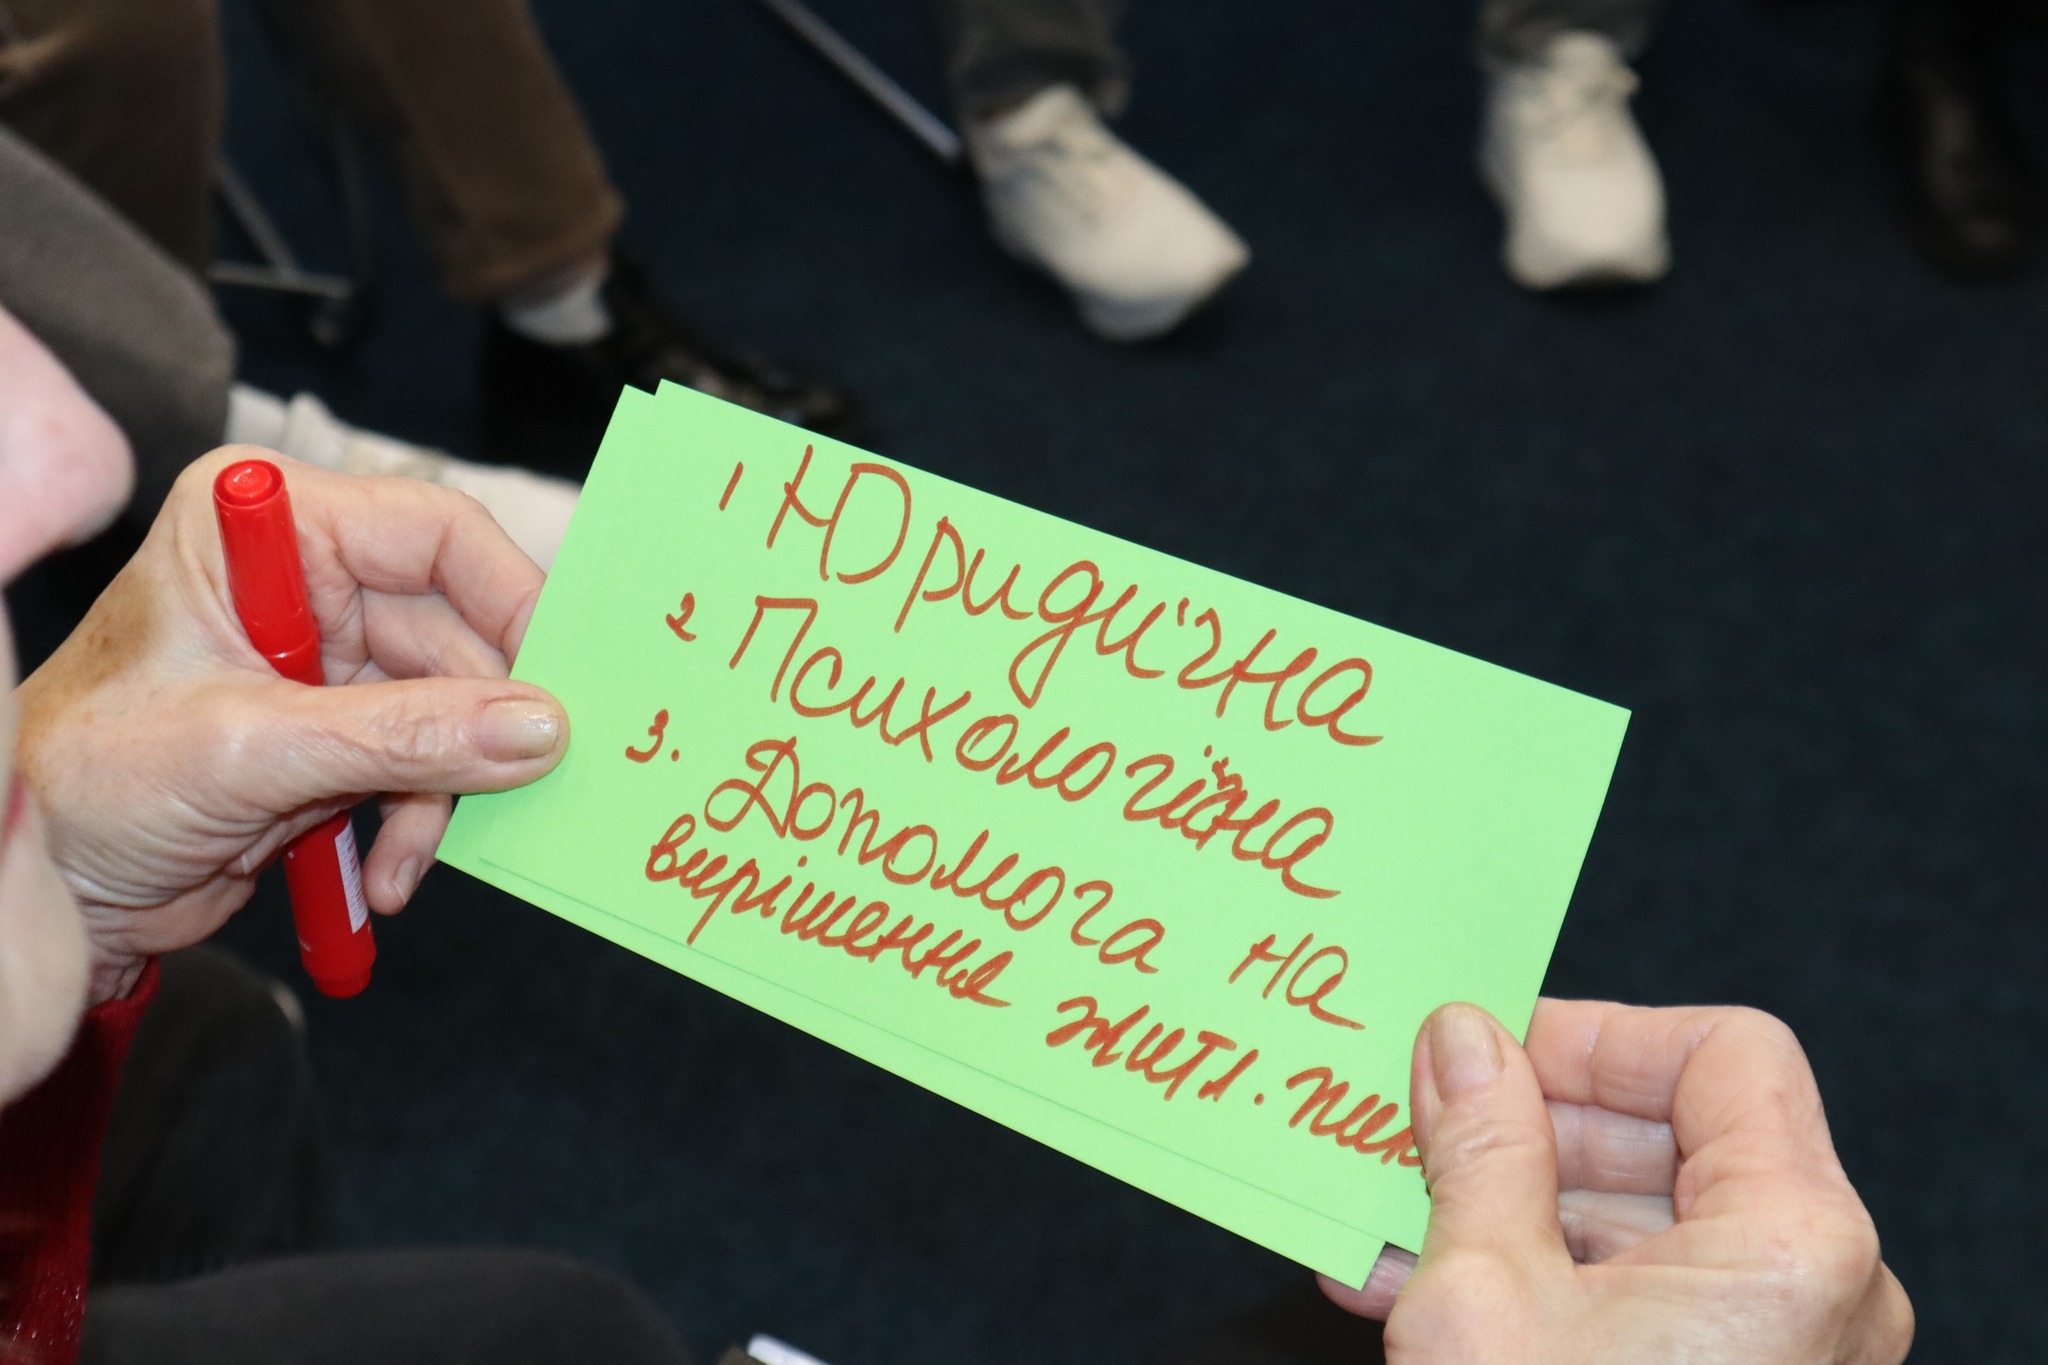 1 Юридична
2 Психологічна
3. Допомога на
вирішення житл.